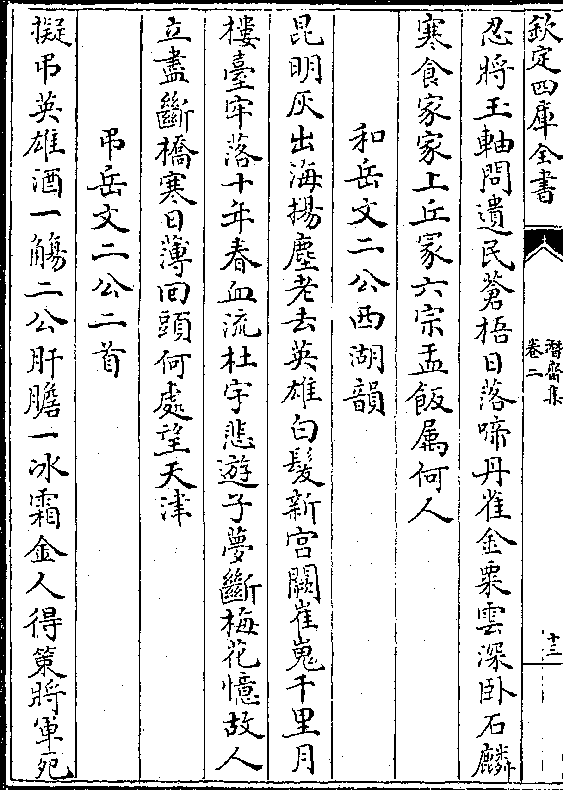 欽定四庫全書
潛齋集
卷二
十三
忍將玉軸問遺民蒼梧日落啼丹雀金粟雲深卧石麟
寒食家家上丘冢六宗盂飯属何人
和岳文二公西湖韻
昆明灰出海揚塵老去英雄白髮新宫闕崔嵬千里月
樓臺牢落十年春血流杜宇悲遊子夢斷梅花憶故人
立盡斷橋寒日薄回頭何處望天津
弔岳文二公二首
擬弔英雄酒一觴二公肝膽一冰霜金人得策將軍死